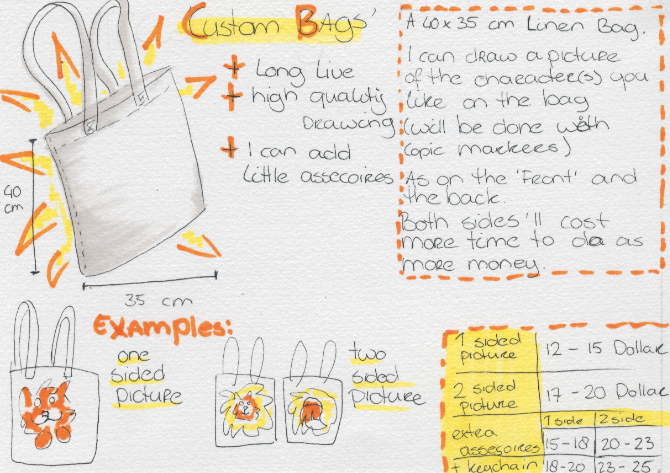 Custom Bags'
+ Long Live
+ high quality
Drawing
+ I can add
little assecoires
40
cm
35 cm
A 40 x 35 cm Linen Bag.
I can draw a picture
of the charaďcter(s) you
like on the bag
(will be done with
copic markers)
As on the 'Front' and
the back.
Both sides'll cost
more time to do as
more money.
Examples:
one
sided
picture
two
sided
picture
1 sided
picture
12 - 15 Dollar
2 sided
picture
17 - 20 Dollar
1 side 2 side
extra
assesoires 15 - 18 20 - 23
+ keychain 18 - 20 23 - 25